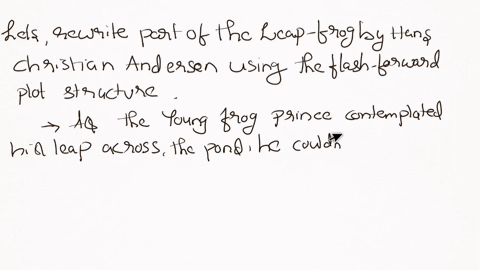 Lets, rewrite part of the Leap-frog by Hans
Christian Andersen using the flash-forward
plot structure .
→ As the Young frog prince contemplated
his leap across, the pond, he couldn